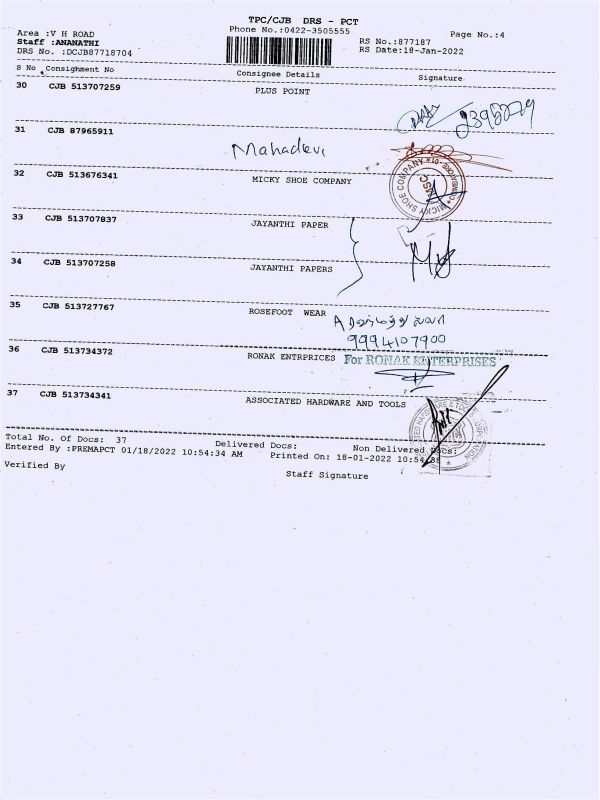 TPC/CJB DRS - PCT
Area :V H ROAD Phone No.:0422-3505555 Page No.:4
Staff :ANANATHI RS No.:877187
DRS No. :DCJB87718704 RS Date:18-Jan-2022
S No Consighment No Consignee Details Signature
30 CJB 513707259 PLUS POINT
31 CJB 87965911
Mahadevi
32 CJB 513676341 MICKY SHOE COMPANY
MICKY SHOE COMPANY MSC
33 CJB 513707837 JAYANTHI PAPER
34 CJB 513707258 JAYANTHI PAPERS
35 CJB 513727767 ROSEFOOT WEAR
9994107900
36 CJB 513734372 RONAK ENTRPRICES For RONAK ENTERPRISES
37 CJB 513734341 ASSOCIATED HARDWARE AND TOOLS
Total No. of Docs: 37 Delivered Docs: Non Delivered Docs:
Entered By :PREMAPCT 01/18/2022 10:54:34 AM Printed On: 18-01-2022 10:54
Verified By Staff Signature